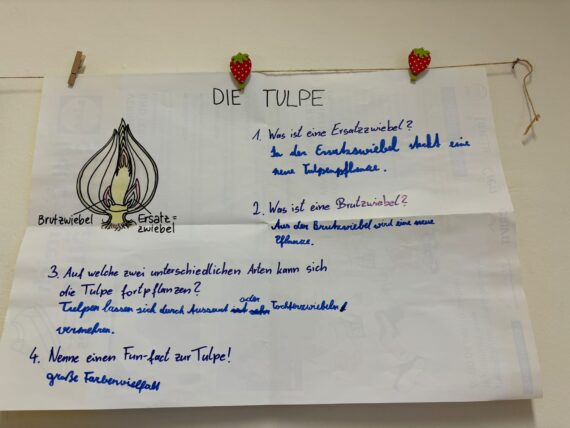 DIE TULPE
1. Was ist eine Ersatzzwiebel?
In der Ersatzwiebel steckt eine
neue Tulpenpflanze.
Brutzwiebel
Ersatz=
zwiebel
2. Was ist eine Brutzwiebel?
Aus der Brutzwiebel wird eine neue
Pflanze.
3. Auf welche zwei unterschiedlichen Arten kann sich
die Tulpe fortpflanzen?
Tulpen lassen sich durch Aussaat oder Tochterzwiebeln
vermehren.
4. Nenne einen Fun-fact zur Tulpe!
große Farbenvielfalt